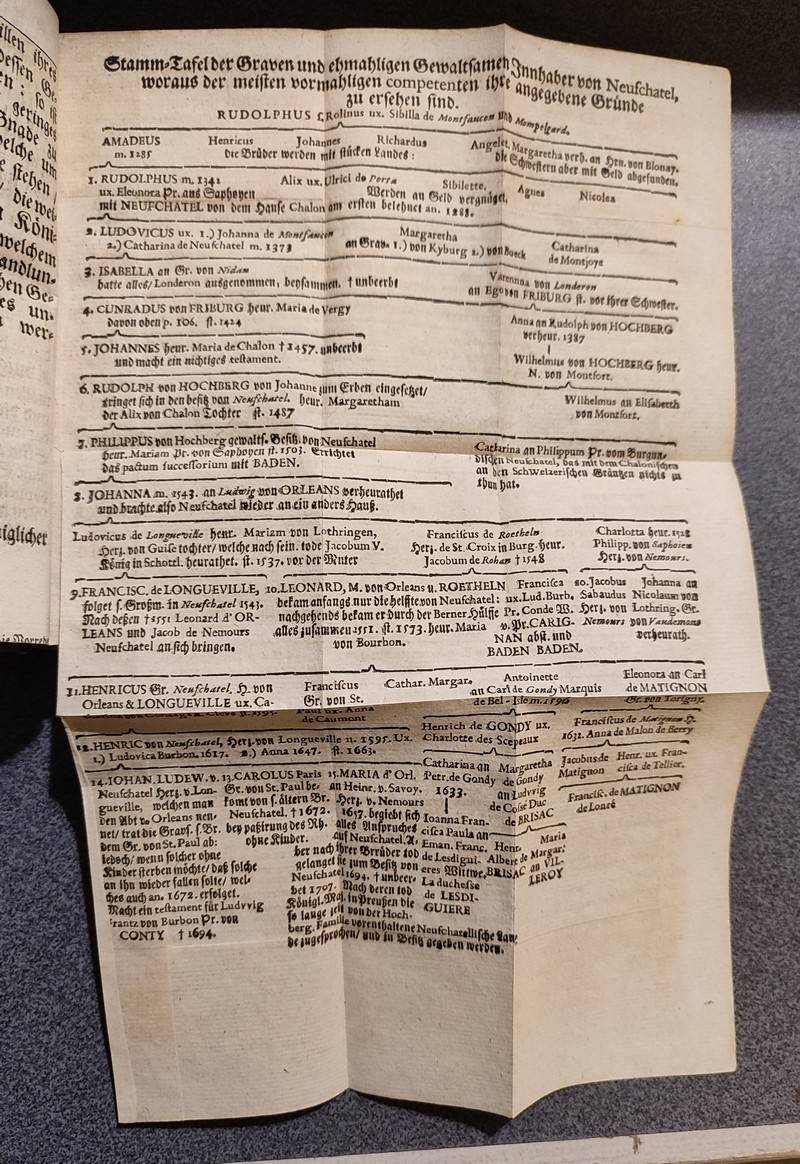 Stamm-Tafel der Graven und ehmahligen Gewaltsamen Innhaber von Neufchatel,
woraus der meisten vormahligen competenten ihre angegebene Gründe
zu ersehen sind.
RUDOLPHUS s. Rolinus ux. Sibilla de Montfaucon und Mompelgard.
AMADEUS Henricus Johannes Richardus Angelet. Margaretha verh. an Hrn. von Blonay.
m. 1285 die Brüder werden mit stücken Landes: die Schwestern aber mit Geld abgefunden.
1. RUDOLPHUS m. 1342 Alix ux. Ulrici de Porta Sibilette, Agnes Nicolea
ux. Eleonora Pr. aus Saphoyen Werden an Geld vergnüget.
mit NEUFCHATEL von dem Hause Chalon am ersten belehnet an. 1288.
2. LUDOVICUS ux. 1.) Johanna de Montfaucon Margaretha Catharina
2.) Catharina de Neufchatel m. 1373 an Grav. 1.) von Kyburg 2.) von Boeck de Montjoye
3. ISABELLA an Gr. von Nidau Varenna von Landeron
hatte alles/ Londeron ausgenommen, beysammen. † unbeerbt an Egon von FRIBURG st. vor ihrer Schwester.
4. CUNRADUS von FRIBURG heur. Maria de Vergy Anna an Rudolph von HOCHBERG
davon oben p. 106. st. 1424 verheur. 1387
5. JOHANNES heur. Maria de Chalon † 1457. unbeerbt Wilhelmus von HOCHBERG heur.
und macht ein nichtiges testament. N. von Montfort.
6. RUDOLPH von HOCHBERG von Johanne zum Erben eingesetzet/ Wilhelmus an Elisabeth
dringet sich in den besitz von Neufchatel. heur. Margaretham von Montfort.
der Alix von Chalon Tochter st. 1487
7. PHILIPPUS von Hochberg gewalts. Besitz. von Neufchatel Catharina an Philippum Pr. vom Burgun-
heur. Mariam Pr. von Saphoyen st. 1503. Errichtet dischen Neufchatel, das mit dem Chalonischen
das pactum successorium mit BADEN. an den Schweizerischen Gräntzen nichts zu
thun hat.
8. JOHANNA m. 1543. an Ludwig von ORLEANS verheurathet
und brachte also Neufchatel wieder an ein anders Hauß.
Ludovicus de Longueville heur. Mariam von Lothringen, Franciscus de Rothelin Charlotta heur. 1528
Herz. von Guise tochter/ welche nach sein. tode Jacobum V. Herz. de St. Croix in Burg. heur. Philipp. von Saphoien
König in Schottl. heurathet. st. 1537. vor der Mutter Jacobum de Rohan † 1548 Herz. von Nemours.
9. FRANCISC. de LONGUEVILLE, 10. LEONARD, M. von Orleans u. ROETHELN Francisca 10. Jacobus Johanna an
folget s. Großm. in Neufchatel 1543. bekam anfangs nur die helffte von Neufchatel: ux. Lud. Burb. Sabaudus Nicolaum von
Nach deßen † 1551 Leonard d'OR- nachgehends bekam er durch der Berner Hülffe Pr. Conde W. Herz. von Lothring. Gr.
LEANS und Jacob de Nemours alles zusammen 1551. st. 1573. heur. Maria v. Pr. CARIG- Nemours von Vaudemons
Neufchatel an sich bringen. von Bourbon. NAN abst. und verheurath.
BADEN BADEN.
11. HENRICUS Gr. Neufchatel. H. von Franciscus Cathar. Margar. Antoinette Eleonora an Carl
Orleans & LONGUEVILLE ux. Ca- Gr. von St. an Carl de Gondy Marquis de MATIGNON
Paul ux. Anna de Bel-Isle m. 1596 Gr. von Torigny.
de Caumont Henrich de GONDY ux. Franciscus de Matignon H.
12. HENRIC von Neufchatel, Herz. von Longueville n. 1595. Ux. Charlotte des Scepeaux 1632. Anna de Malon de Bercy
1.) Ludovica Burbon. 1617. 2.) Anna 1647. st. 1663. Catharina an Margaretha Jacobus de Henr. ux. Fran-
14. IOHAN. LUDEW. v. 13. CAROLUS Paris 15. MARIA d' Orl. Petr. de Gondy de Gondy Matignon cisca de Tellier.
Neufchatel Herz. v. Lon- Gr. von St. Paul be- an Heinr. v. Savoy. 1633. an Ludvvig Francisc. de MATIGNON
gueville, welchen man komt von s. ältern Br. Herz. v. Nemours de Cossé Duc de Loncé
den Abt v. Orleans nen- Neufchatel. † 1672. 1657. begiebt sich Ioanna Fran- de BRISAC
net/ trat die Gravs. s. Br. bey paßirung des Rh. alles Anspruches cisca Paula an
dem Gr. von St. Paul ab: ohne Kinder. auf Neufchatel. A. Eman. Franc. Henr. Maria
jedoch/ wenn solcher ohne ber nach ihrer Brrüder tod de Lesdigui. Albert de Margar.
Kinder sterben möchte/ daß solche gelanget sie zum Besitz von eres Wittwe. BRISAC an VIL-
an ihn wieder fallen solte/ wel- Neufchatel 1694. † unbeer- La duchesse LEROY
ches auch an. 1672. erfolget. bet 1707. Nach deren tod de LESDI-
Macht ein testament für Ludvvig Königl. Maj. in Preußen die GUIERE
Frantz von Burbon Pr. von so lange zeit von der Hoch-
CONTY † 1694. berg. Familie vorenthaltene Neufchatellische Lan-
de zugesprochen/ und in Besitz gegeben werden.